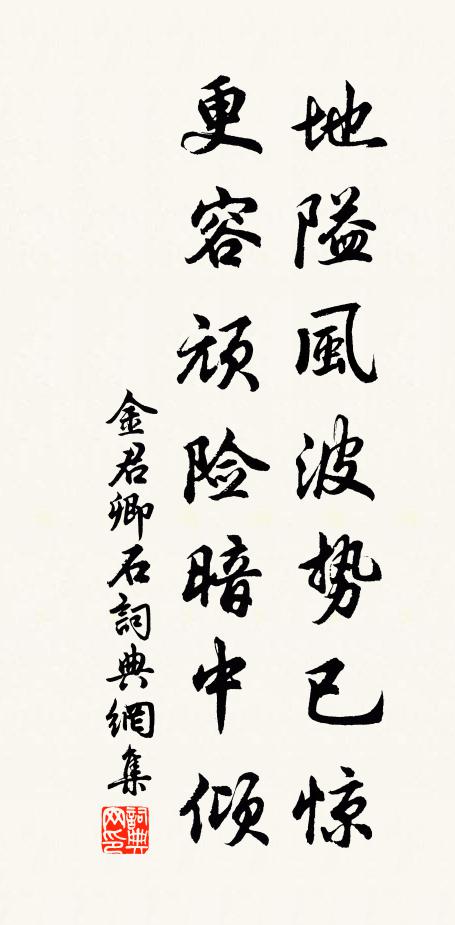 地隘風波势已惊
更容顽险暗中倾
金君卿石詞典網集
詞典
网印